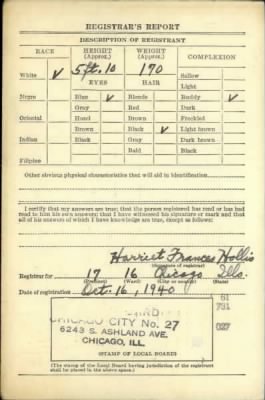 REGISTRAR'S REPORT
DESCRIPTION OF REGISTRANT
RACE HEIGHT (Approx.) WEIGHT (Approx.) COMPLEXION
White ✓ 5 ft. 10 170 Sallow
EYES HAIR Light
Negro Blue ✓ Blonde Ruddy ✓
Gray Red Dark
Oriental Hazel Brown Freckled
Brown Black ✓ Light brown
Indian Black Gray Dark brown
Bald Black
Filipino
Other obvious physical characteristics that will aid in identification
I certify that my answers are true; that the person registered has read or has had
read to him his own answers; that I have witnessed his signature or mark and that
all of his answers of which I have knowledge are true, except as follows:
Harriet Frances Hollis
(Signature of registrar)
Registrar for 17 16 Chicago Ills.
(Precinct) (Ward) (City or county) (State)
Date of registration Oct. 16, 1940
61
CHICAGO CITY No. 27 731
6243 S. ASHLAND AVE. 027
CHICAGO, ILL.
STAMP OF LOCAL BOARD
(The stamp of the Local Board having jurisdiction of the registrant
shall be placed in the above space.)